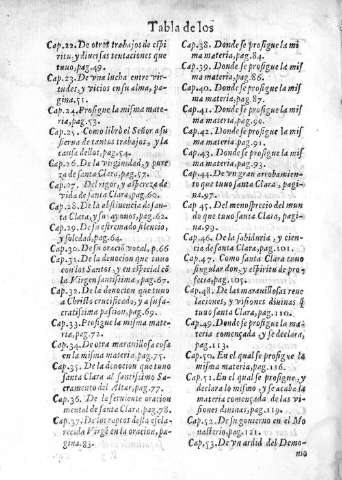 Tabla de los
Cap.22. De otros trabajos de espi
ritu, y diuersas tentaciones que
tuuo, pag.49.
Cap.23. De vna lucha entre vir-
tudes, y vicios en su alma, pa-
gina.51.
Cap.24. Prosigue la misma mate-
ria, pag.53.
Cap.25. Como librò el Señor a su
sierua de tantos trabajos, y la
causa dellos, pag.54.
Cap.26. De la virginidad, y pure
za de santa Clara, pag.57.
Cap.27. Del rigor, y aspereza de
vida de santa Clara, pag.60.
Cap.28. De la abstinencia de san-
ta Clara, y su ayunos, pag.62.
Cap.29. De su estremado silencio,
y soledad, pag.64.
Cap.30. De su oracion vocal, p.66
Cap.31. De la deuocion que tuuo
con los Santos, y en especial cõ
la Virgen santissima, pag.67.
Cap.32. De la deuocion que tuuo
a Christo crucificado, y a su sa-
cratissima passion, pag.69.
Cap.33. Prosigue la misma mate-
ria, pag.72.
Cap.34. De otra marauillosa cosa
en la misma materia, pag.75.
Cap.35. De la deuocion que tuuo
santa Clara al santissimo Sa-
cramento del Altar, pag.77.
Cap.36. De la feruiente oracion
mental de santa Clara, pag.78.
Cap.37. De los raptos desta escla-
recida Virgẽ en la oracion, pa-
gina.83.
Cap.38. Donde se prosigue la mis
ma materia, pag.84.
Cap.39. Donde se prosigue la mis
ma materia, pag.86.
Cap.40. Donde se prosigue la mis
ma materia, pag.87.
Cap.41. Donde se prosigue la mis
ma materia, pag.90.
Cap.42. Donde se prosigue la mis
ma materia, pag.91.
Cap.43. Donde se prosigue la mis
ma materia, pag.93.
Cap.44. De vn gran arrobamien-
to que tuuo santa Clara, pagi-
na.97.
Cap.45. Del menosprecio del mun
do que tuuo santa Clara, pagi-
na.99.
Cap.46. De la sabiduria, y cien-
cia de santa Clara, pag.101.
Cap.47. Como santa Clara tuuo
singular don, y espiritu de pro
fecia, pag.105.
Cap.48. De las marauillosas reue
laciones, y visiones diuinas q̃
tuuo santa Clara, pag.110.
Cap.49. Donde se prosigue la ma-
teria començada, y se declara,
pag.113.
Cap.50. En el qual se prosigue la
misma materia, pag.116.
Cap.51. En el qual se prosigue, y
declara lo mismo, y se acaba la
materia começada de las vi-
siones diuinas, pag.119.
Cap.52. De su gouierno en el Mo
nasterio, pag.121.
Cap.53. De vn ardid del Demo-
nio